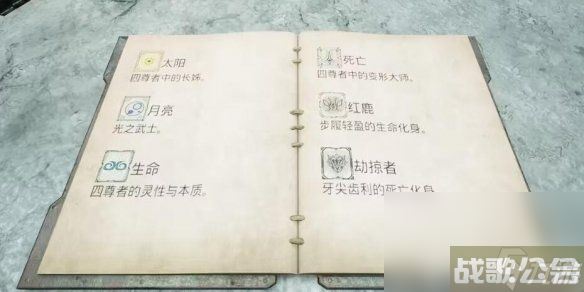 太阳
四尊者中的长姊。
月亮
光之武士。
生命
四尊者的灵性与本质。
死亡
四尊者中的变形大师。
红鹿
步履轻盈的生命化身。
劫掠者
牙尖齿利的死亡化身
战歌公会